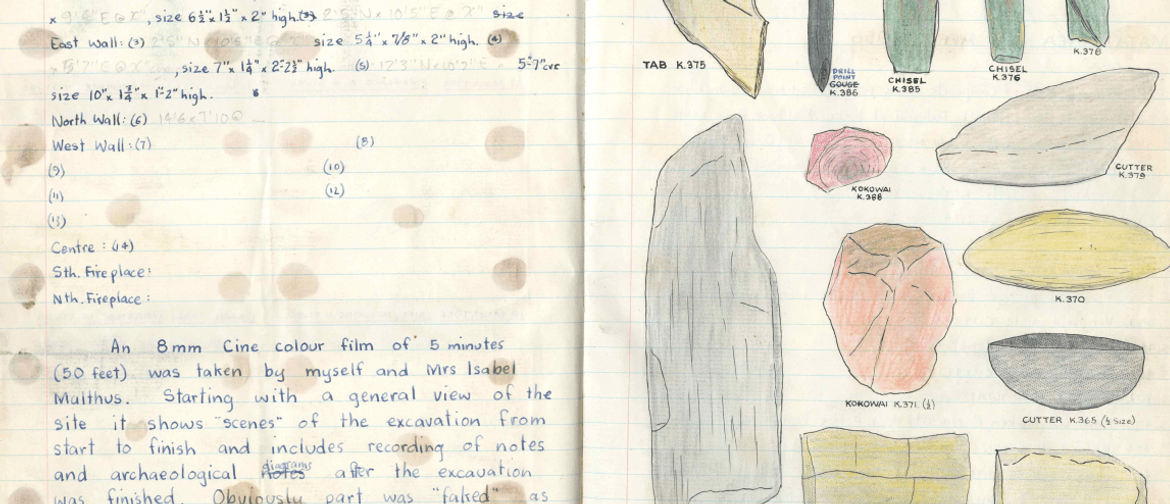 x 9'5"E@X", size 6½"x 1½" x 2" high. (3) 2'5"N x 10'5"E@X" size
East Wall: (3) size 5¼" x 7/8" x 2" high. (4)
, size 7" x 1¼" x 2"-2½" high. (5) 12'3"N x 10'2"E 5"-7"cvr
size 10" x 1¾" x 1"-2" high.
North Wall: (6) 14'6x7'10@
West Wall: (7) (8)
(9) (10)
(11) (12)
(13)
Centre: (14)
Sth. Fireplace:
Nth. Fireplace:
An 8mm Cine colour film of 5 minutes
(50 feet) was taken by myself and Mrs Isabel
Malthus. Starting with a general view of the
site it shows "scenes" of the excavation from
start to finish and includes recording of notes
and archaeological notes diagrams after the excavation
was finished. Obviously part was "faked" as
TAB K.375
DRILL
POINT
GOUGE
K.386
CHISEL
K.385
CHISEL
K.376
K.378
CUTTER
K.379
KOKOWAI
K.388
K.370
KOKOWAI K.371. (½)
CUTTER K.365 (½ SIZE)